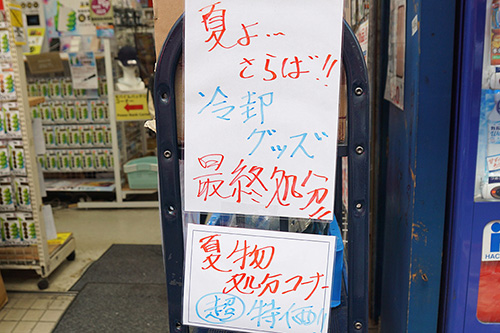 夏よ…
さらば!!
冷却
グッズ
最終処分!!
夏物
処分コーナー
超 特価!!